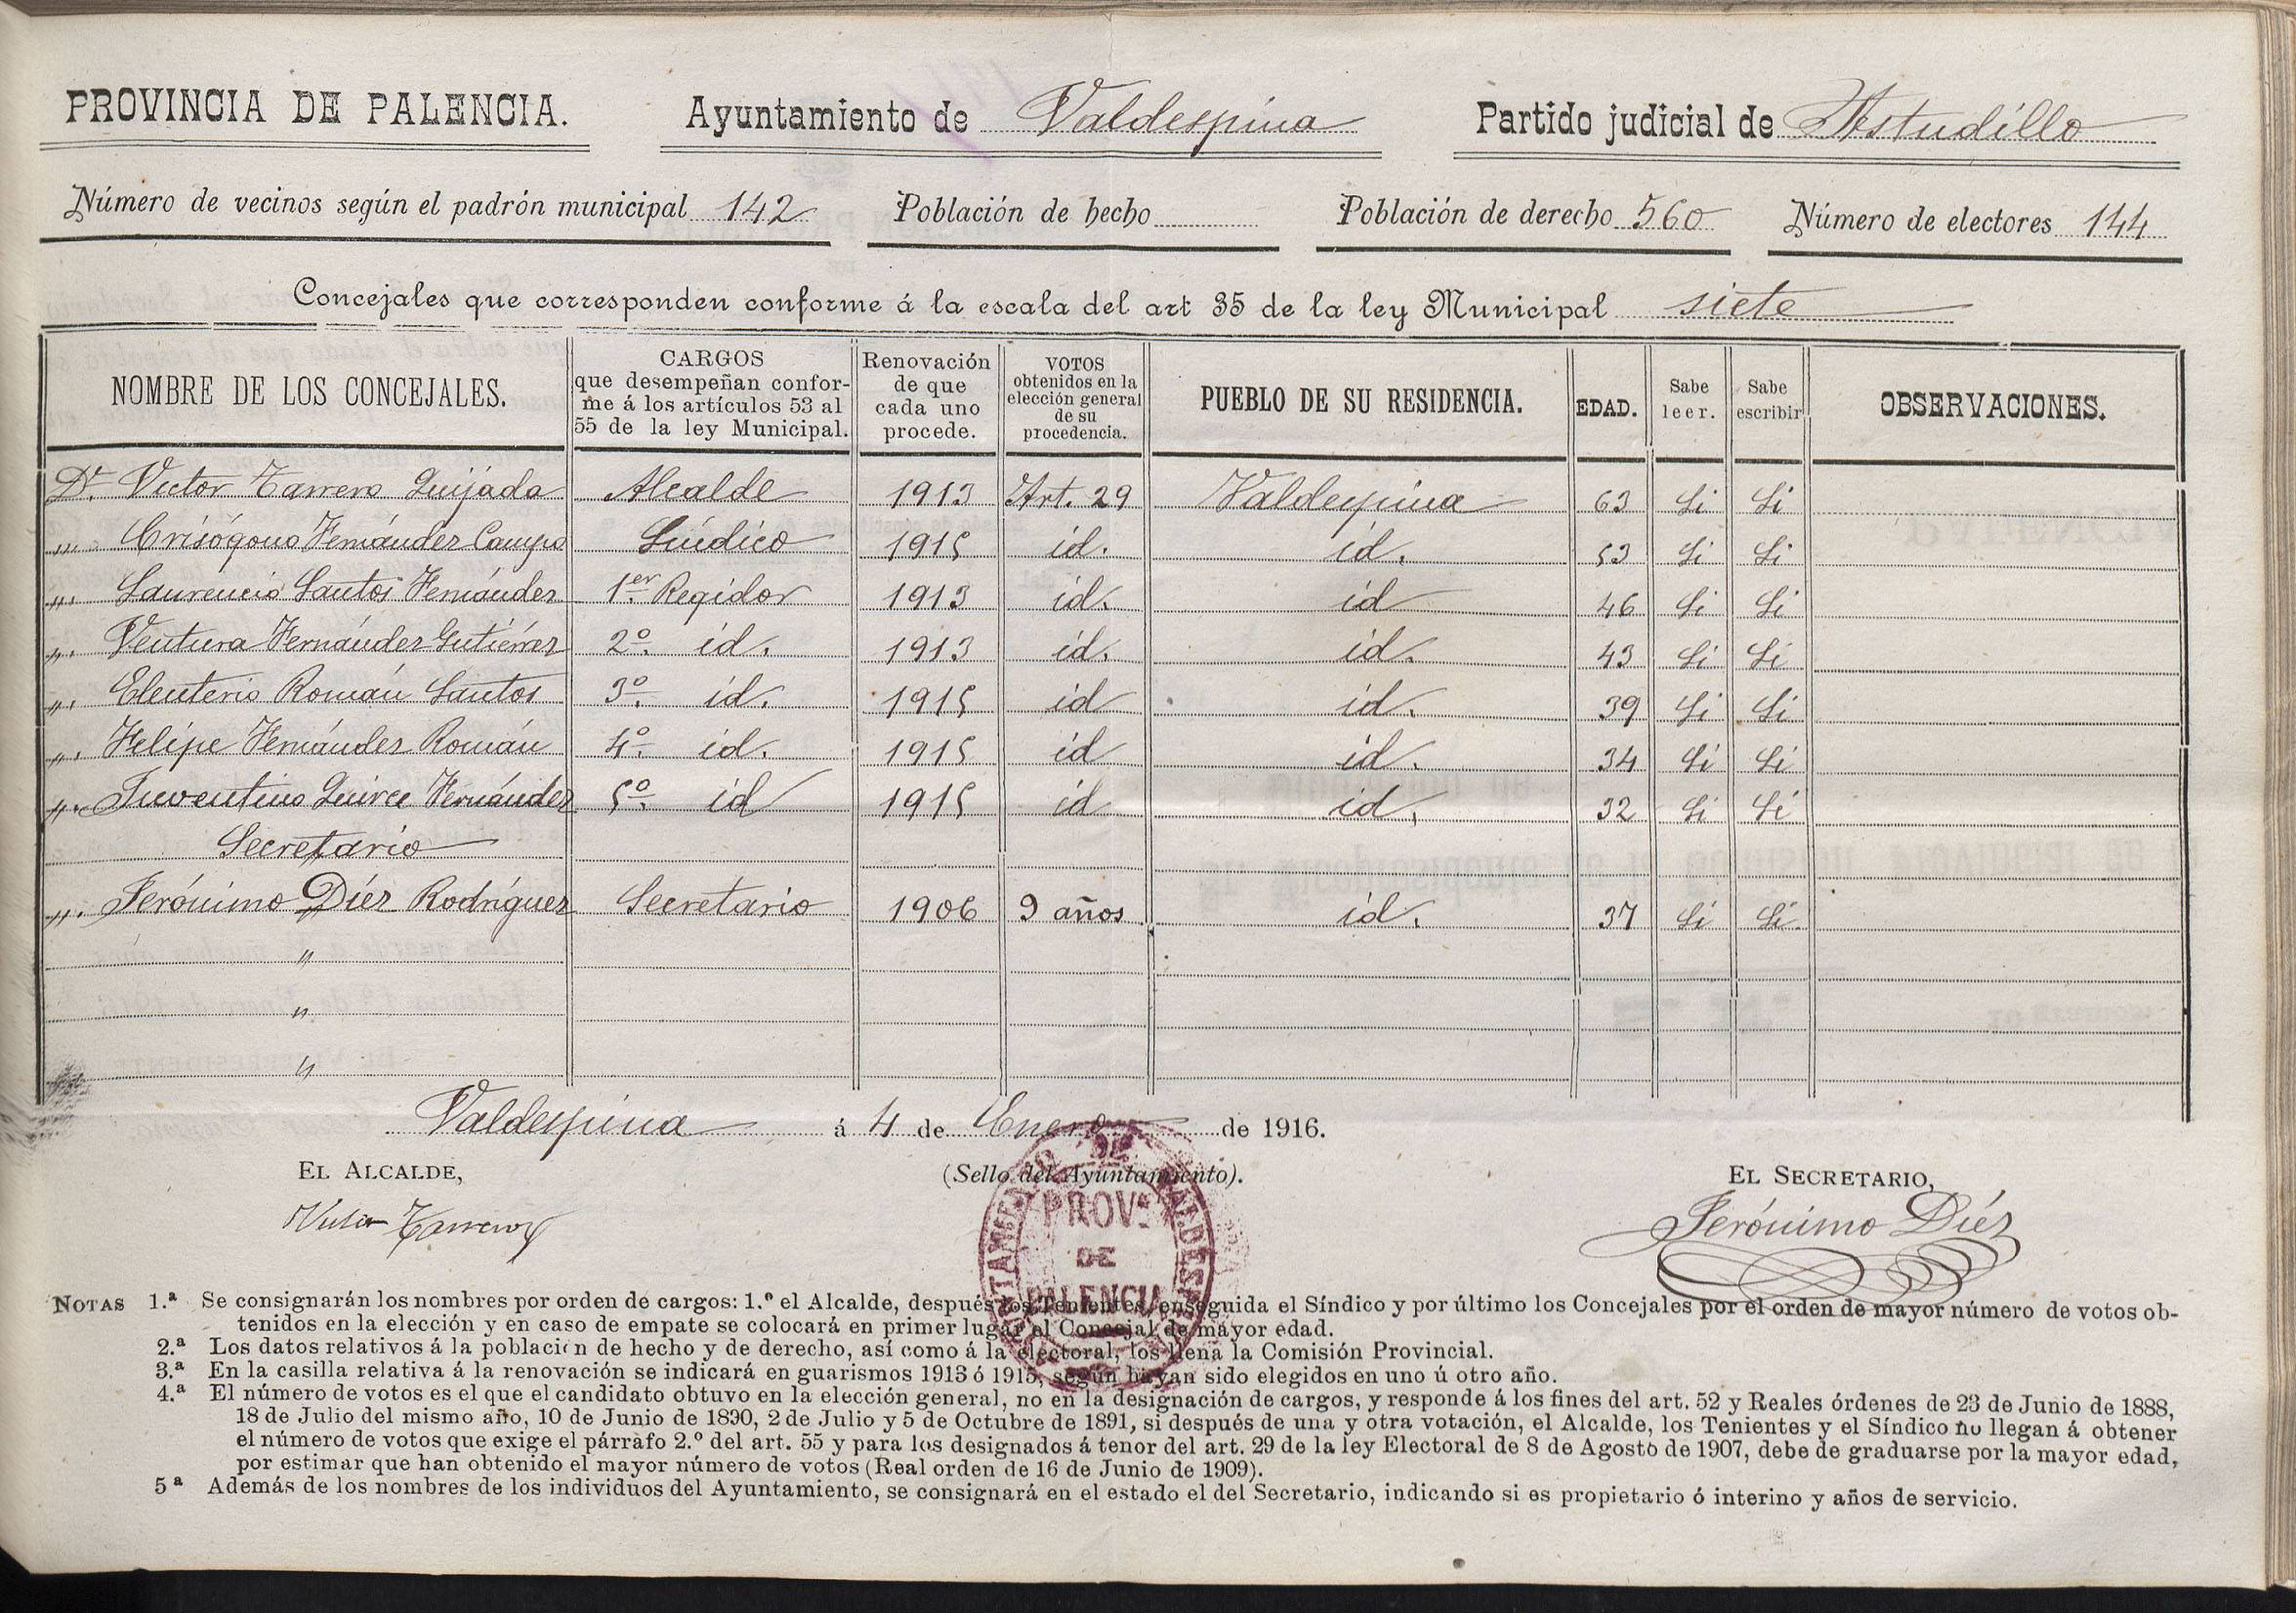 PROVINCIA DE PALENCIA. Ayuntamiento de Valdespina Partido judicial de Astudillo
Número de vecinos según el padrón municipal 142 Población de hecho Población de derecho 560 Número de electores 144
Concejales que corresponden conforme á la escala del art 35 de la ley Municipal siete
NOMBRE DE LOS CONCEJALES. CARGOS que desempeñan conforme á los artículos 53 al 55 de la ley Municipal. Renovación de que cada uno procede. VOTOS obtenidos en la elección general de su procedencia. PUEBLO DE SU RESIDENCIA. EDAD. Sabe leer. Sabe escribir OBSERVACIONES.
Dn. Victor Tarrero Quijada Alcalde 1913 Art. 29 Valdespina 63 Si Si
„. Crisógono Fernández Campo Síndico 1915 id. id. 53 Si Si
„. Laurencio Santos Fernández 1er Regidor 1913 id. id 46 Si Si
„. Ventura Fernández Gutiérrez 2º. id. 1913 id. id. 43 Si Si
„. Eleuterio Román Santos 3º. id. 1915 id id. 39 Si Si
„. Felipe Fernández Román 4º. id. 1915 id id. 34 Si Si
„. Juventino Quirce Fernández 5º. id 1915 id id. 32 Si Si
Secretario
„. Jerónimo Díez Rodríguez Secretario 1906 9 años id. 37 Si Si
"
"
"
Valdespina á 4 de Enero de 1916.
EL ALCALDE, (Sello del Ayuntamiento). EL SECRETARIO,
Victor Tarrero Jerónimo Díez
PROVª
DE
PALENCIA
NOTAS 1.ª Se consignarán los nombres por orden de cargos: 1.º el Alcalde, después los Tenientes, enseguida el Síndico y por último los Concejales por el orden de mayor número de votos ob-
tenidos en la elección y en caso de empate se colocará en primer lugar el Concejal de mayor edad.
2.ª Los datos relativos á la población de hecho y de derecho, así como á la electoral, los llena la Comisión Provincial.
3.ª En la casilla relativa á la renovación se indicará en guarismos 1913 ó 1915, según hayan sido elegidos en uno ú otro año.
4.ª El número de votos es el que el candidato obtuvo en la elección general, no en la designación de cargos, y responde á los fines del art. 52 y Reales órdenes de 23 de Junio de 1888,
18 de Julio del mismo año, 10 de Junio de 1890, 2 de Julio y 5 de Octubre de 1891, si después de una y otra votación, el Alcalde, los Tenientes y el Síndico no llegan á obtener
el número de votos que exige el párrafo 2.º del art. 55 y para los designados á tenor del art. 29 de la ley Electoral de 8 de Agosto de 1907, debe de graduarse por la mayor edad,
por estimar que han obtenido el mayor número de votos (Real orden de 16 de Junio de 1909).
5ª Además de los nombres de los individuos del Ayuntamiento, se consignará en el estado el del Secretario, indicando si es propietario ó interino y años de servicio.